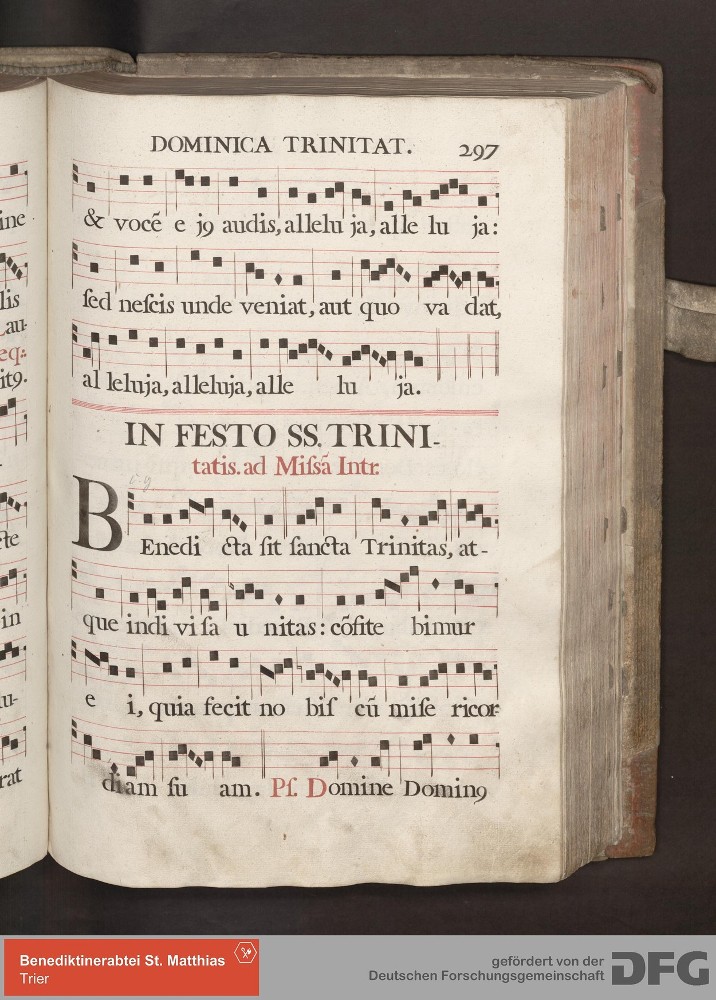 DOMINICA TRINITAT. 297
ine
& vocē e j9 audis, allelu ja, alle lu ja:
lis
sed nescis unde veniat, aut quo va dat,
au-
eq:
it9.
al leluja, alleluja, alle lu ja.
IN FESTO SS. TRINI-
tatis. ad Missā Intr.
cte
BEnedi cta sit sancta Trinitas, at-
in
que indi visa u nitas: cōfite bimur
u-
e i, quia fecit no bis cū mise ricor-
rat
diam su am. Ps. Domine Doming
Benediktinerabtei St. Matthias
Trier
gefördert von der
Deutschen Forschungsgemeinschaft
DFG